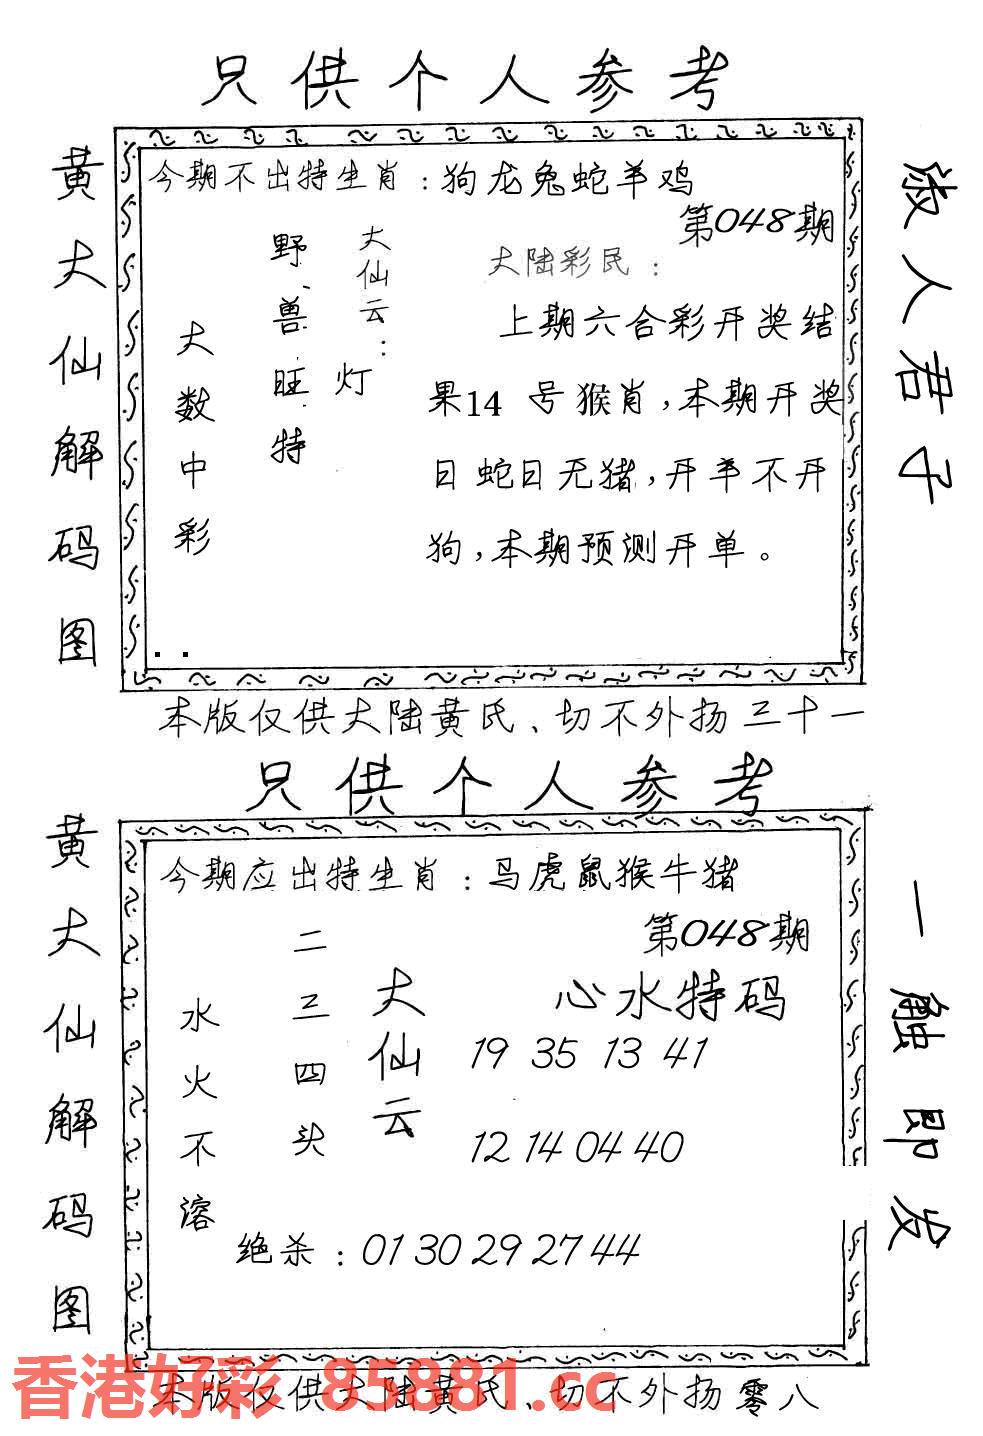 只供个人参考
黄大仙解码图
今期不出特生肖：狗龙兔蛇羊鸡
第048期
大仙云：
灯
野兽旺特
大数中彩
大陆彩民：
上期六合彩开奖结
果14 号猴肖，本期开奖
日蛇日无猪，开羊不开
狗，本期预测开单。
淑人君子
本版仅供大陆黄氏、切不外扬三十一
只供个人参考
黄大仙解码图
今期应出特生肖：马虎鼠猴牛猪
第048期
心水特码
19 35 13 41
12 14 04 40
大仙云
二三四头
水火不溶
绝杀：01 30 29 27 44
一触即发
香港好彩 85881.cc
本版仅供大陆黄氏、切不外扬零八